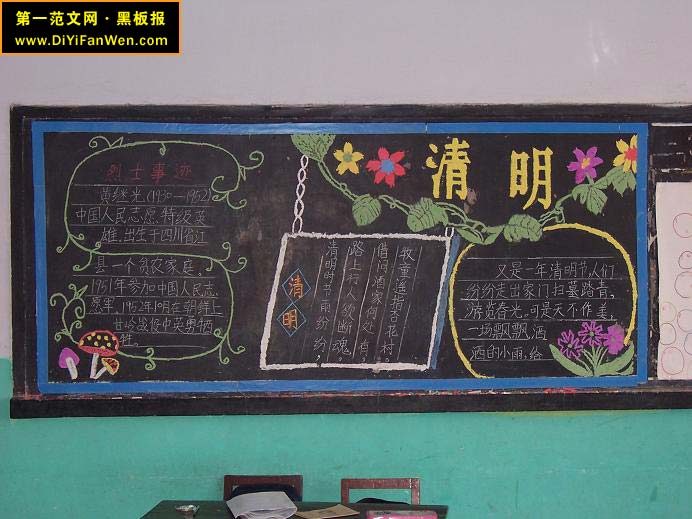 第一范文网·黑板报
www.DiYiFanWen.com
清明
烈士事迹
黄继光(1930—1952)
中国人民志愿特级英
雄,出生于四川省江
县一个贫农家庭,
1951年参加中国人民志
愿军,1952年10月在朝鲜上
甘岭战役中英勇牺
牲。
清明
清明时节雨纷纷,
路上行人欲断魂。
借问酒家何处有,
牧童遥指杏花村。
又是一年清明节,人们
纷纷走出家门扫墓踏青,
游览春光。可是天不作美,
一场飘飘洒
洒的小雨,给